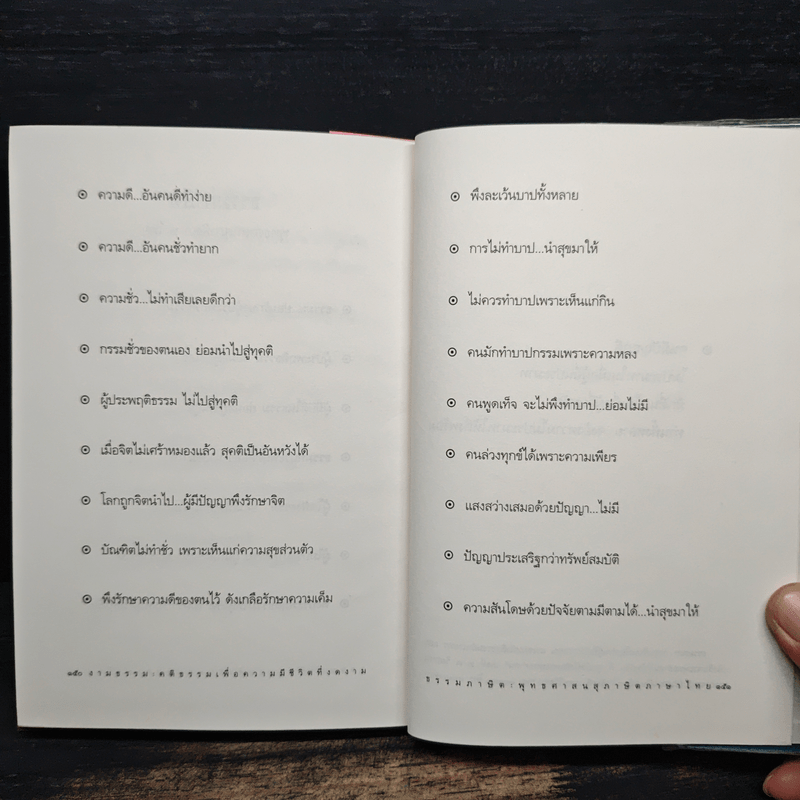 ๏ ความดี...อันคนดีทำง่าย
๏ ความดี...อันคนชั่วทำยาก
๏ ความชั่ว...ไม่ทำเสียเลยดีกว่า
๏ กรรมชั่วของตนเอง ย่อมนำไปสู่ทุคติ
๏ ผู้ประพฤติธรรม ไม่ไปสู่ทุคติ
๏ เมื่อจิตไม่เศร้าหมองแล้ว สุคติเป็นอันหวังได้
๏ โลกถูกจิตนำไป...ผู้มีปัญญาพึงรักษาจิต
๏ บัณฑิตไม่ทำชั่ว เพราะเห็นแก่ความสุขส่วนตัว
๏ พึงรักษาความดีของตนไว้ ดังเกลือรักษาความเค็ม
๑๕๐ งามธรรม : คติธรรมเพื่อความมีชีวิตที่งดงาม
๏ พึงละเว้นบาปทั้งหลาย
๏ การไม่ทำบาป...นำสุขมาให้
๏ ไม่ควรทำบาปเพราะเห็นแก่กิน
๏ คนมักทำบาปกรรมเพราะความหลง
๏ คนพูดเท็จ จะไม่พึงทำบาป...ย่อมไม่มี
๏ คนล่วงทุกข์ได้เพราะความเพียร
๏ แสงสว่างเสมอด้วยปัญญา...ไม่มี
๏ ปัญญาประเสริฐกว่าทรัพย์สมบัติ
๏ ความสันโดษด้วยปัจจัยตามมีตามได้...นำสุขมาให้
ธรรมภาษิต : พุทธศาสนสุภาษิตภาษาไทย ๑๕๑